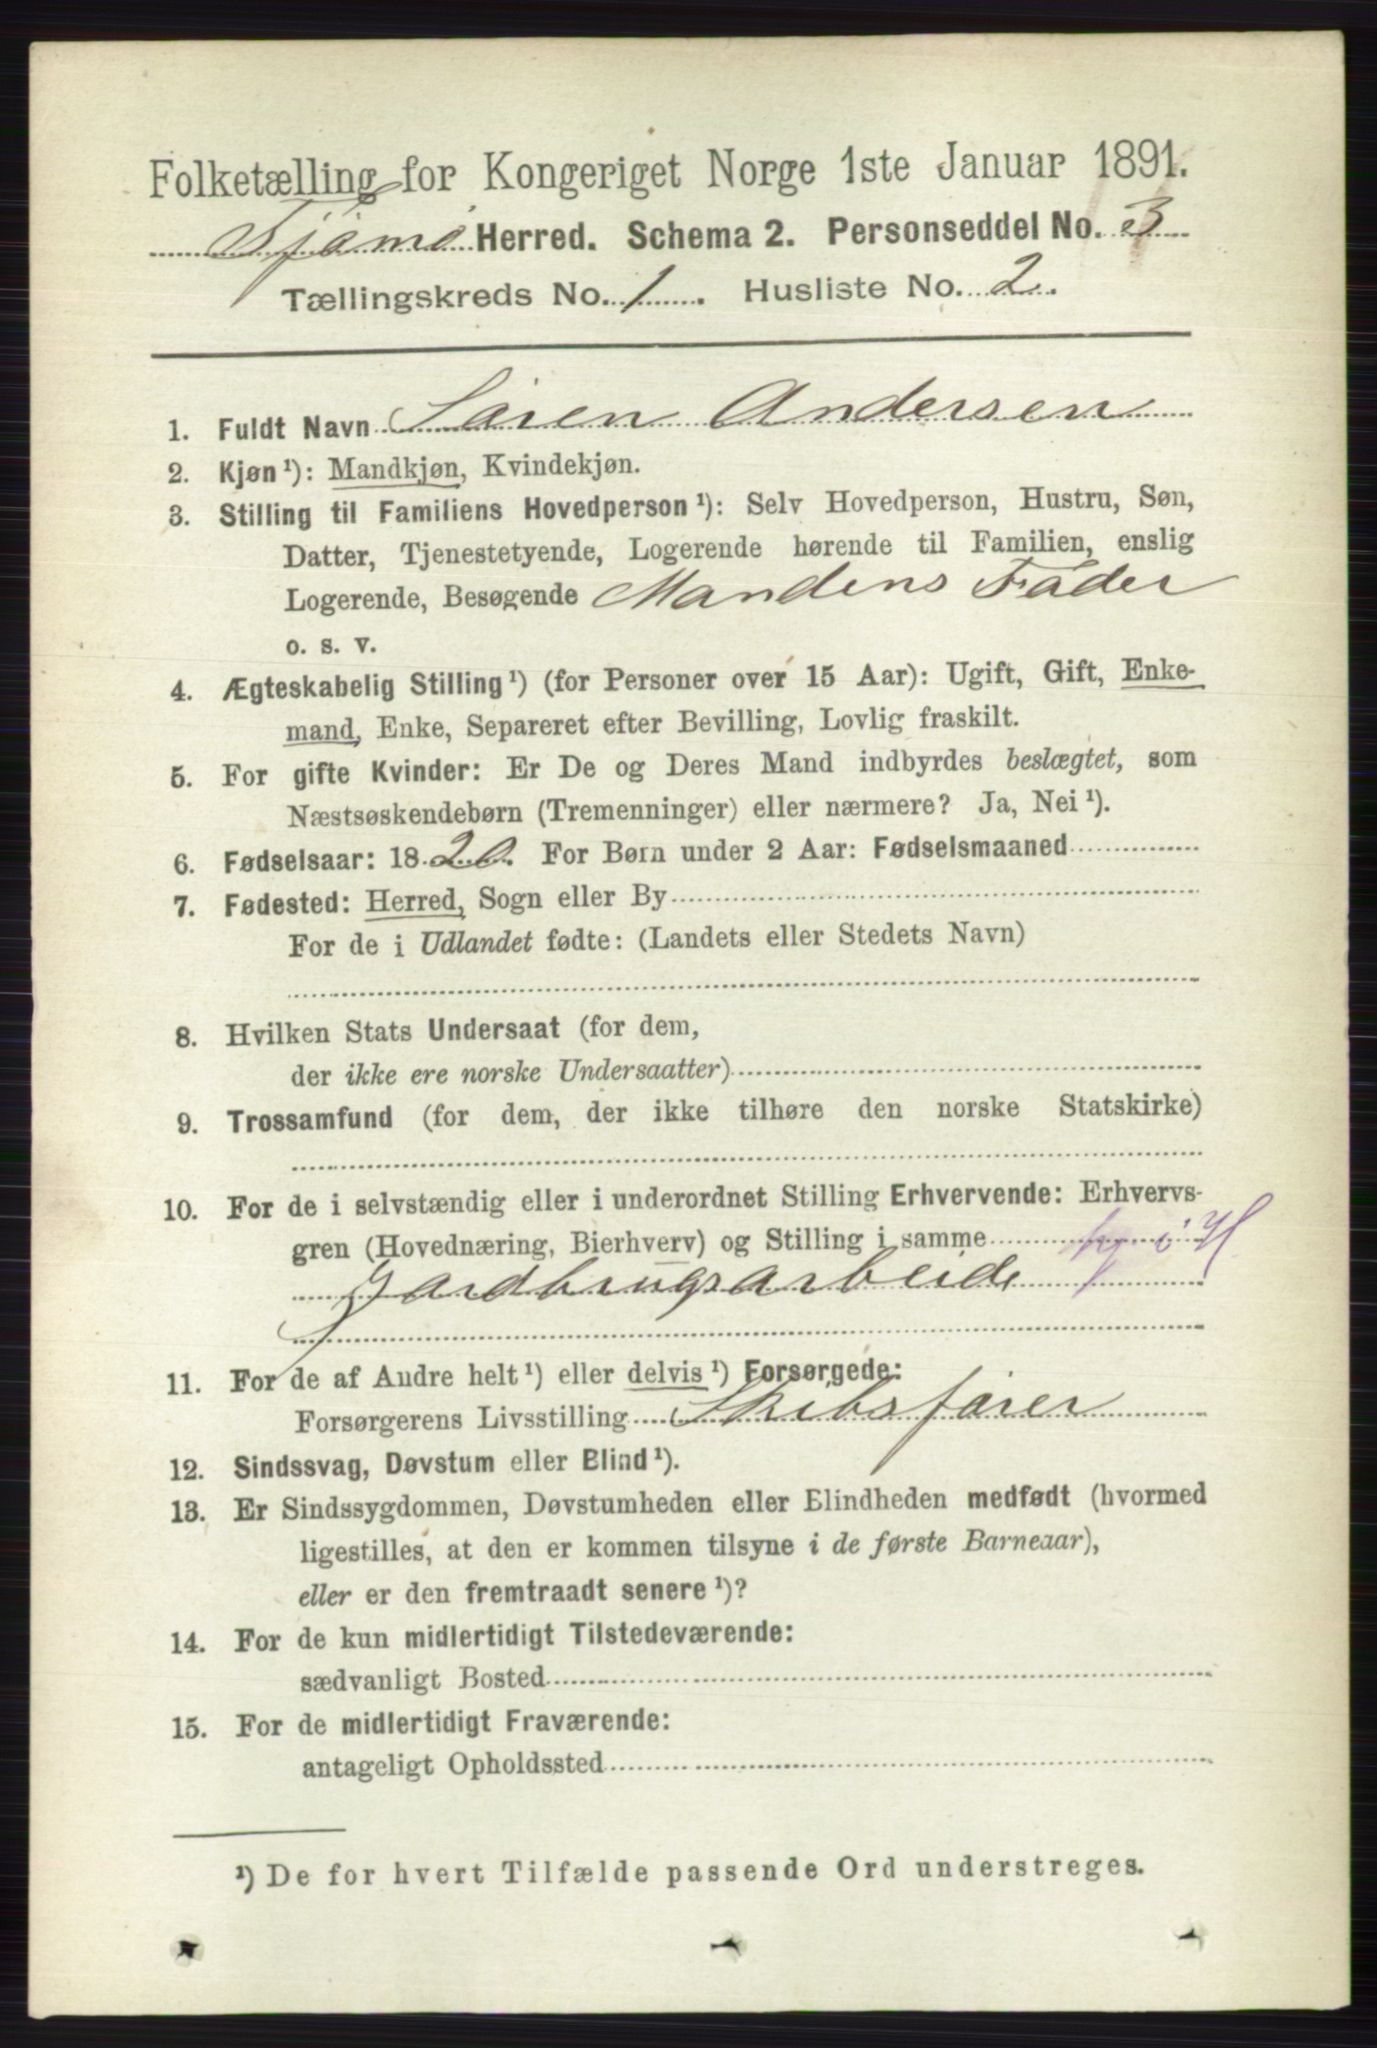 Folketælling for Kongeriget Norge 1ste Januar 1891.
Tjømø Herred. Schema 2. Personseddel No. 3
Tællingskreds No. 1. Husliste No. 2.
1. Fuldt Navn Søren Andersen
2. Kjøn ¹): Mandkjøn, Kvindekjøn.
3. Stilling til Familiens Hovedperson ¹): Selv Hovedperson, Hustru, Søn,
Datter, Tjenestetyende, Logerende hørende til Familien, enslig
Logerende, Besøgende Mandens Fader
o. s. v.
4. Ægteskabelig Stilling ¹) (for Personer over 15 Aar): Ugift, Gift, Enke-
mand, Enke, Separeret efter Bevilling, Lovlig fraskilt.
5. For gifte Kvinder: Er De og Deres Mand indbyrdes beslægtet, som
Næstsøskendebørn (Tremenninger) eller nærmere? Ja, Nei ¹).
6. Fødselsaar: 1820. For Børn under 2 Aar: Fødselsmaaned
7. Fødested: Herred, Sogn eller By
For de i Udlandet fødte: (Landets eller Stedets Navn)
8. Hvilken Stats Undersaat (for dem,
der ikke ere norske Undersaatter)
9. Trossamfund (for dem, der ikke tilhøre den norske Statskirke)
10. For de i selvstændig eller i underordnet Stilling Erhvervende: Erhvervs-
gren (Hovednæring, Bierhverv) og Stilling i samme
Jardbrugsarbeide
11. For de af Andre helt ¹) eller delvis ¹) Forsørgede:
Forsørgerens Livsstilling Skibsfører
12. Sindssvag, Døvstum eller Blind ¹).
13. Er Sindssygdommen, Døvstumheden eller Blindheden medfødt (hvormed
ligestilles, at den er kommen tilsyne i de første Barneaar),
eller er den fremtraadt senere ¹)?
14. For de kun midlertidigt Tilstedeværende:
sædvanligt Bosted
15. For de midlertidigt Fraværende:
antageligt Opholdssted
¹) De for hvert Tilfælde passende Ord understreges.